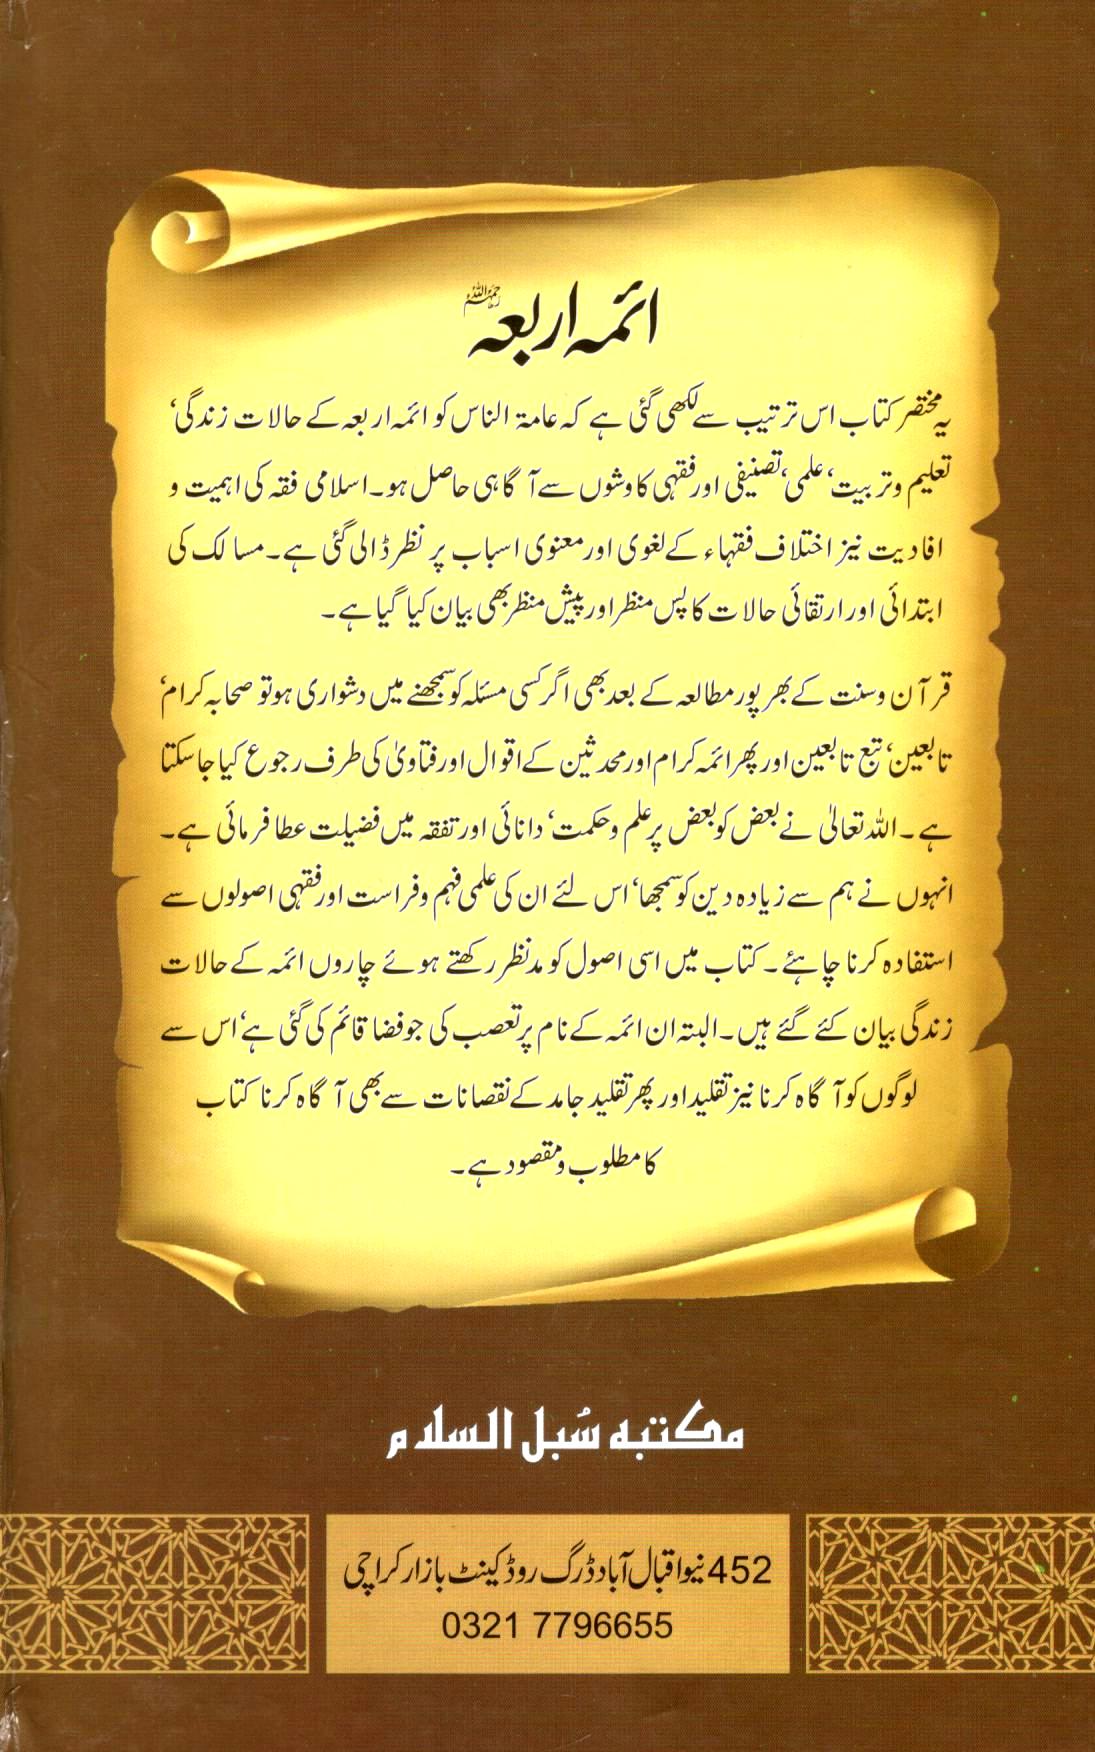 ائمہ اربعہ رحمہم اللہ
یہ مختصر کتاب اس ترتیب سے لکھی گئی ہے کہ عامۃ الناس کو ائمہ اربعہ کے حالات زندگی‘
تعلیم و تربیت‘ علمی‘ تصنیفی اور فقہی کاوشوں سے آگاہی حاصل ہو۔ اسلامی فقہ کی اہمیت و
افادیت نیز اختلاف فقہاء کے لغوی اور معنوی اسباب پر نظر ڈالی گئی ہے۔ مسالک کی
ابتدائی اور ارتقائی حالات کا پس منظر اور پیش منظر بھی بیان کیا گیا ہے۔
قرآن و سنت کے بھرپور مطالعہ کے بعد بھی اگر کسی مسئلہ کو سمجھنے میں دشواری ہو تو صحابہ کرام‘
تابعین‘ تبع تابعین اور پھر ائمہ کرام اور محدثین کے اقوال اور فتاویٰ کی طرف رجوع کیا جا سکتا
ہے۔ اللہ تعالیٰ نے بعض کو بعض پر علم و حکمت‘ دانائی اور تفقہ میں فضیلت عطا فرمائی ہے۔
انہوں نے ہم سے زیادہ دین کو سمجھا‘ اس لئے ان کی علمی فہم و فراست اور فقہی اصولوں سے
استفادہ کرنا چاہئے۔ کتاب میں اسی اصول کو مدنظر رکھتے ہوئے چاروں ائمہ کے حالات
زندگی بیان کئے گئے ہیں۔ البتہ ان ائمہ کے نام پر تعصب کی جو فضا قائم کی گئی ہے‘ اس سے
لوگوں کو آگاہ کرنا نیز تقلید اور پھر تقلید جامد کے نقصانات سے بھی آگاہ کرنا کتاب
کا مطلوب و مقصود ہے۔
مکتبہ سُبل السلام
452 نیو اقبال آباد ڈرگ روڈ کینٹ بازار کراچی
0321 7796655